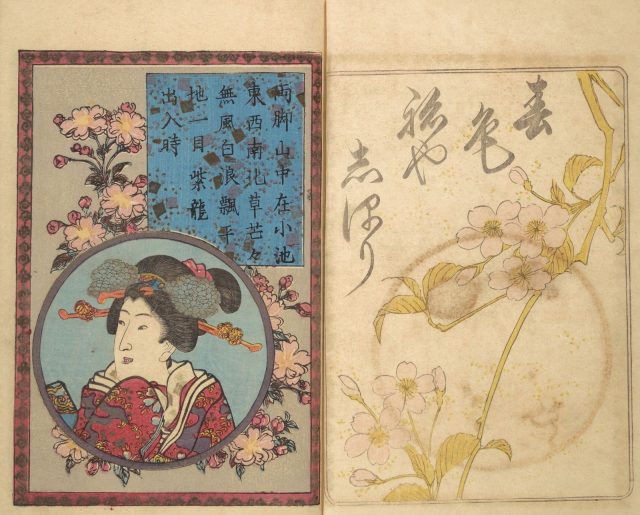 春
色
祢や
志保り
両脚山中在小池
東西南北草芒々
無風白浪飄平
地一目紫龍
出入時